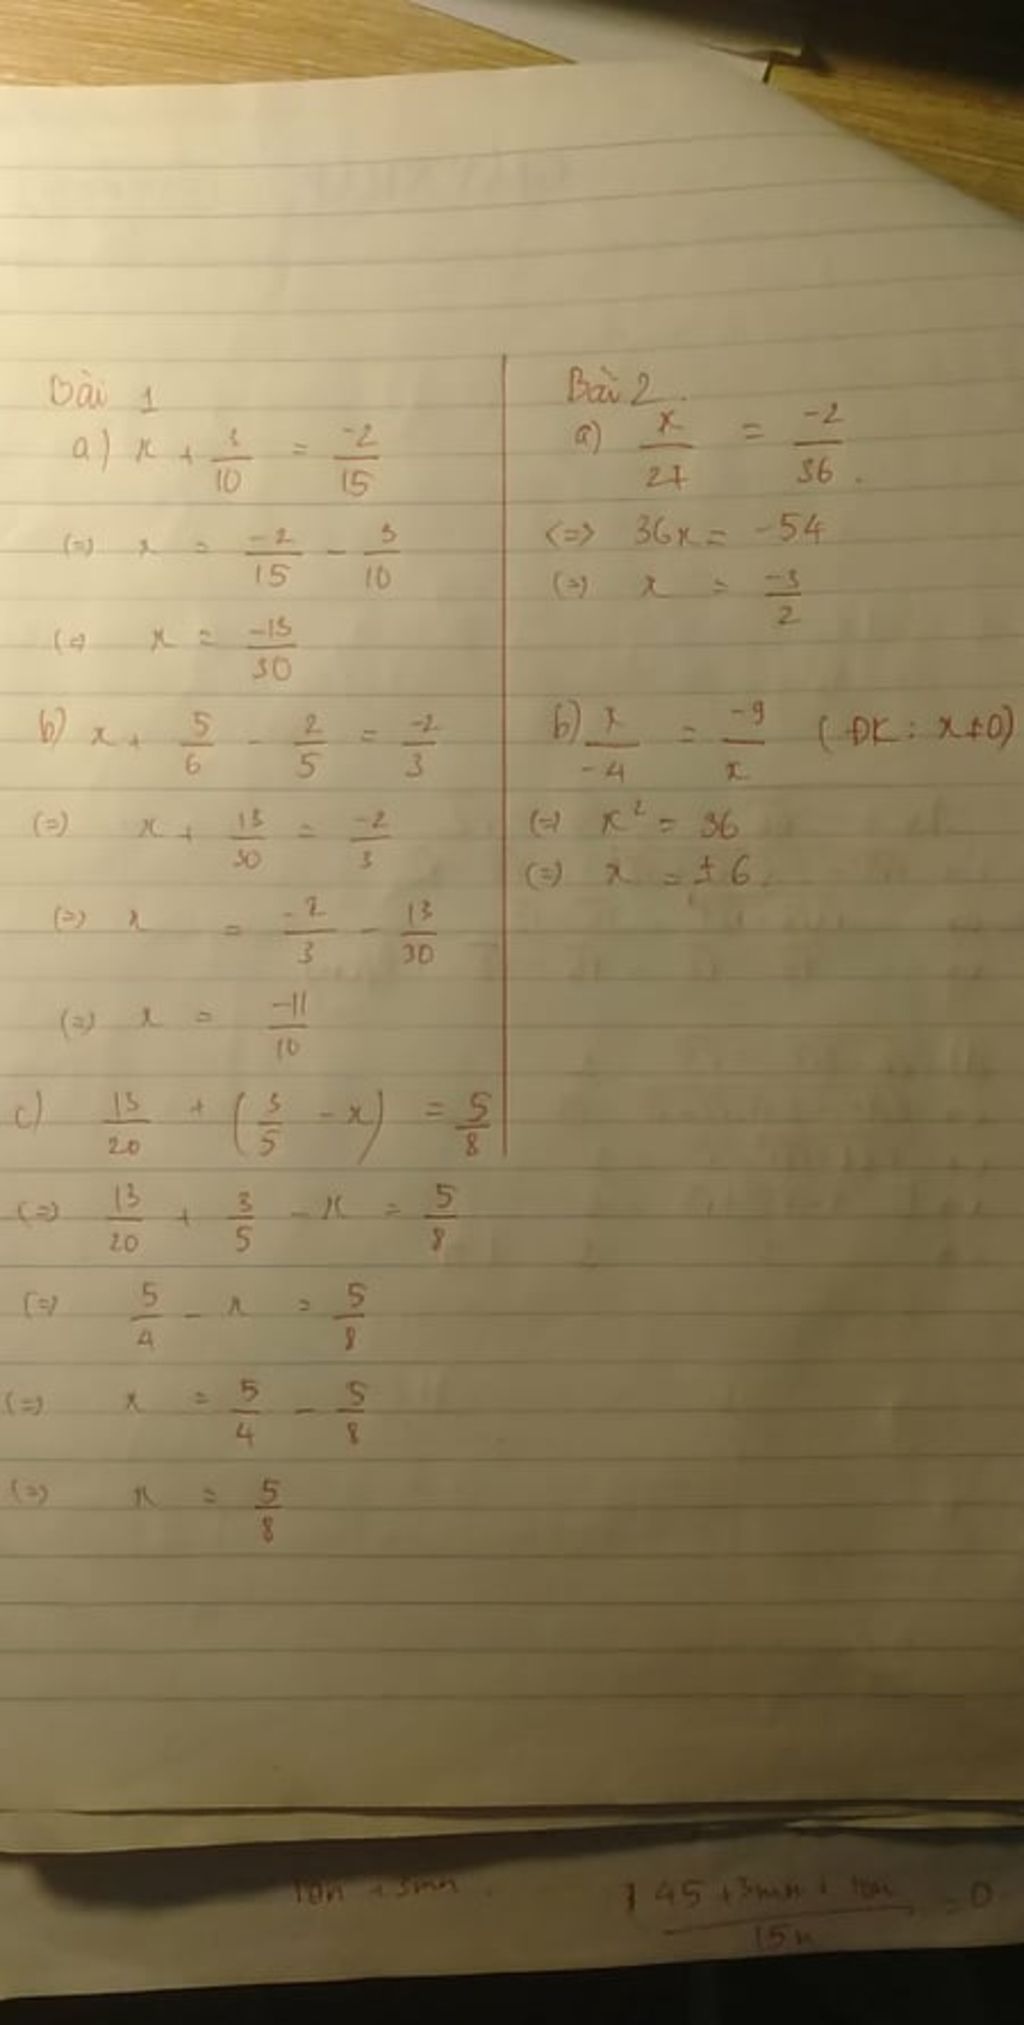 Bài 1
a) x + 3/10 = -2/15
(=) x = -2/15 - 3/10
(=) x = -13/30
b) x + 5/6 - 2/5 = -2/3
(=) x + 13/30 = -2/3
(=) x = -2/3 - 13/30
(=) x = -11/10
c) 13/20 + (3/5 - x) = 5/8
(=) 13/20 + 3/5 - x = 5/8
(=) 5/4 - x = 5/8
(=) x = 5/4 - 5/8
(=) x = 5/8
Bài 2.
a) x/27 = -2/36.
<=> 36x = -54
(=) x = -3/2
b) x/-4 = -9/x (ĐK: x≠0)
(=) x² = 36
(=) x = ±6.
10n + 3mn.